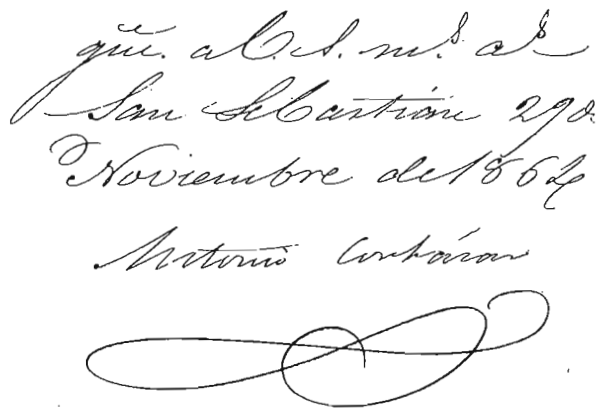 San Sebastián 29 de
Noviembre de 1862
Antonio Cortázar